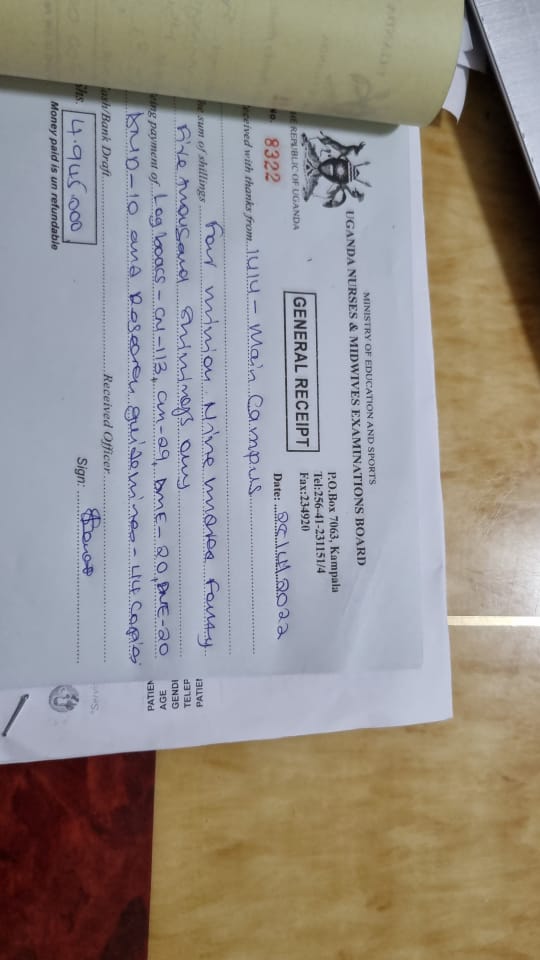 MINISTRY OF EDUCATION AND SPORTS
UGANDA NURSES & MIDWIVES EXAMINATIONS BOARD
THE REPUBLIC OF UGANDA
GENERAL RECEIPT
P.O.Box 7063, Kampala
Tel:256-41-231151/4
Fax:234920
No. 8322
Date:
2022
eceived with thanks from 1414 - Main Campus
he sum of shillings Four million Nine Fourty
Five thousand shillings only
eing payment of Log books - CN-113, CM-29, DME-20, DNE-20
and Research guidelines - 44 Copies
ash/Bank Draft
Received Officer
Shs. 4.945.000
Sign:
Money paid is un refundable
PATIEN
AGE
GENDI
TELEP
PATIEI